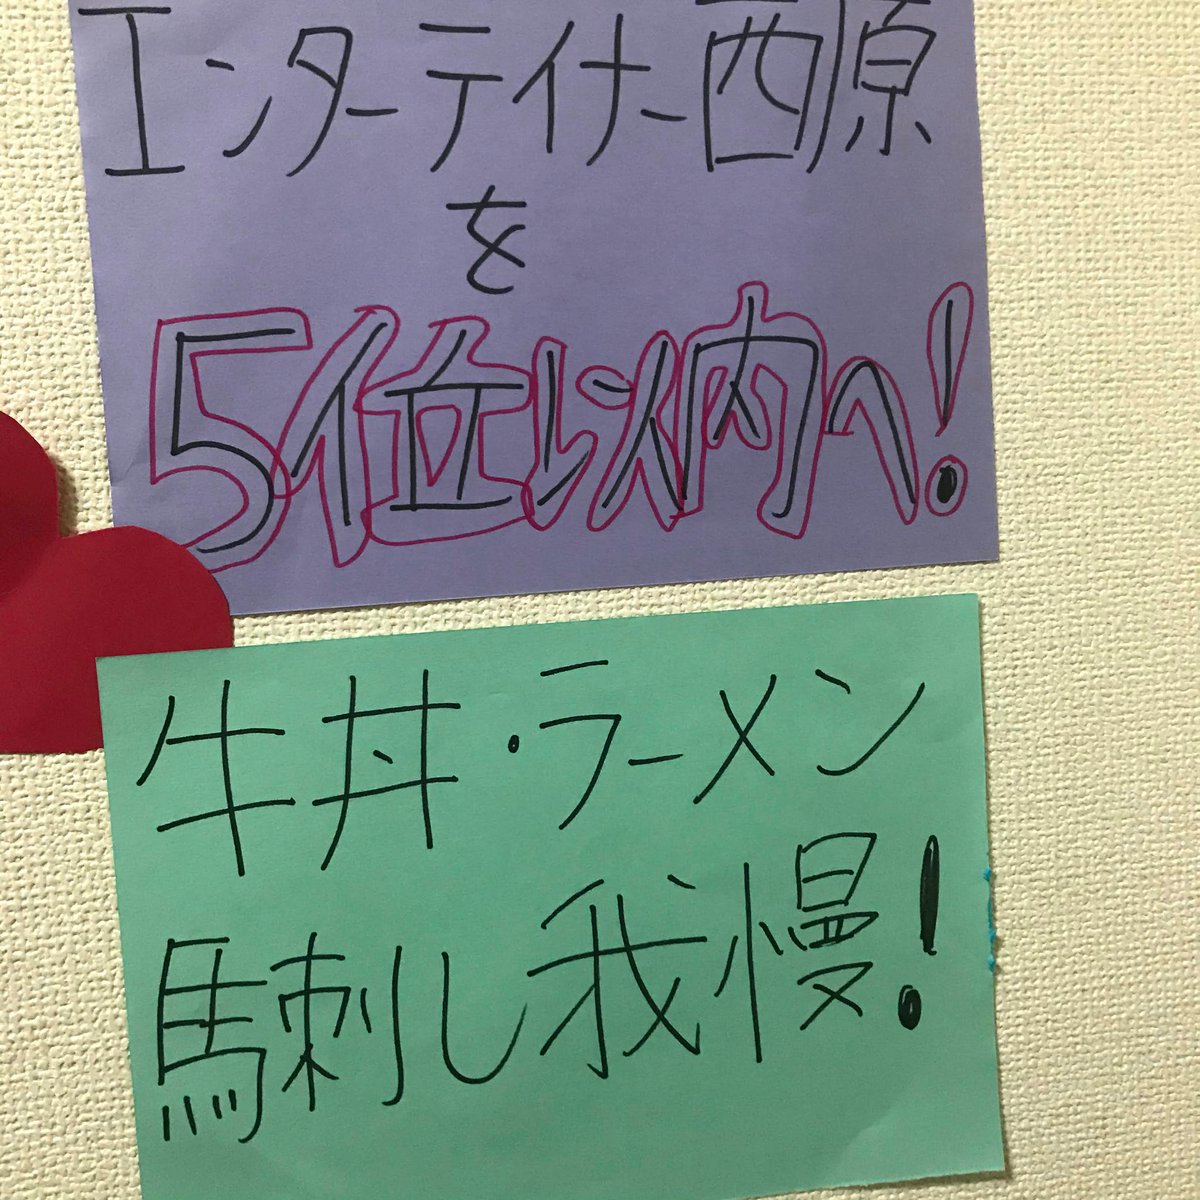 エンターテイナー西原
を
5位以内へ!
牛丼・ラーメン
馬刺し我慢!